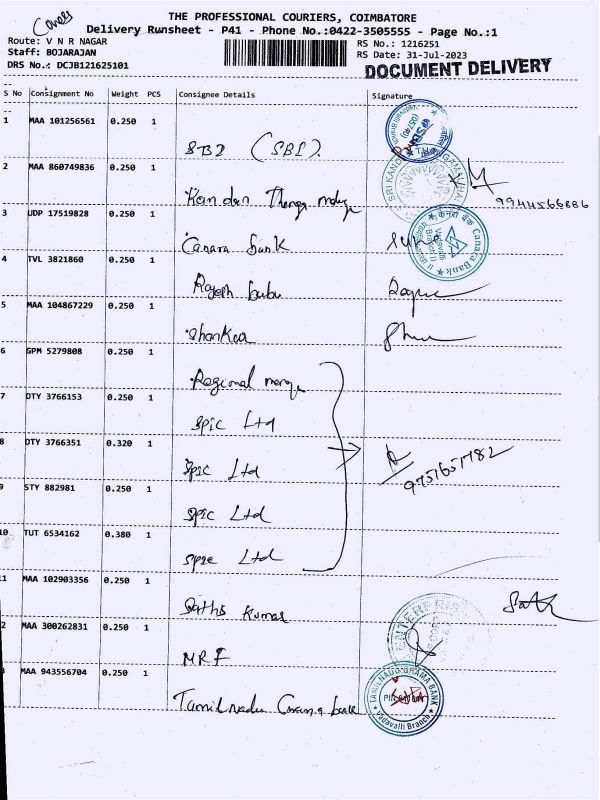 Canara
THE PROFESSIONAL COURIERS, COIMBATORE
Delivery Runsheet - P41 - Phone No.:0422-3505555 - Page No.:1
Route: V N R NAGAR
Staff: BOJARAJAN
DRS No.: DCJB121625101
RS No.: 1216251
RS Date: 31-Jul-2023
DOCUMENT DELIVERY
S No Consignment No Weight PCS Consignee Details Signature
1 MAA 101256561 0.250 1
SBI (SBI).
2 MAA 860749836 0.250 1
Kandan
9944566886
3 UDP 17519828 0.250 1
Canara bank
4 TVL 3821860 0.250 1
Rajesh babu
5 MAA 104867229 0.250 1
6 GPM 5279808 0.250 1
Regional
7 DTY 3766153 0.250 1
Spic Ltd
8 DTY 3766351 0.320 1
Spic Ltd
9751651782
9 STY 882981 0.250 1
Spic Ltd
10 TUT 6534162 0.380 1
Spic Ltd
11 MAA 102903356 0.250 1
Kumar
2 MAA 300262831 0.250 1
MRF
MAA 943556704 0.250 1
Tamilnadu Grama bank
Canara Bank
TAMILNADU GRAMA BANK
Vadavalli Branch